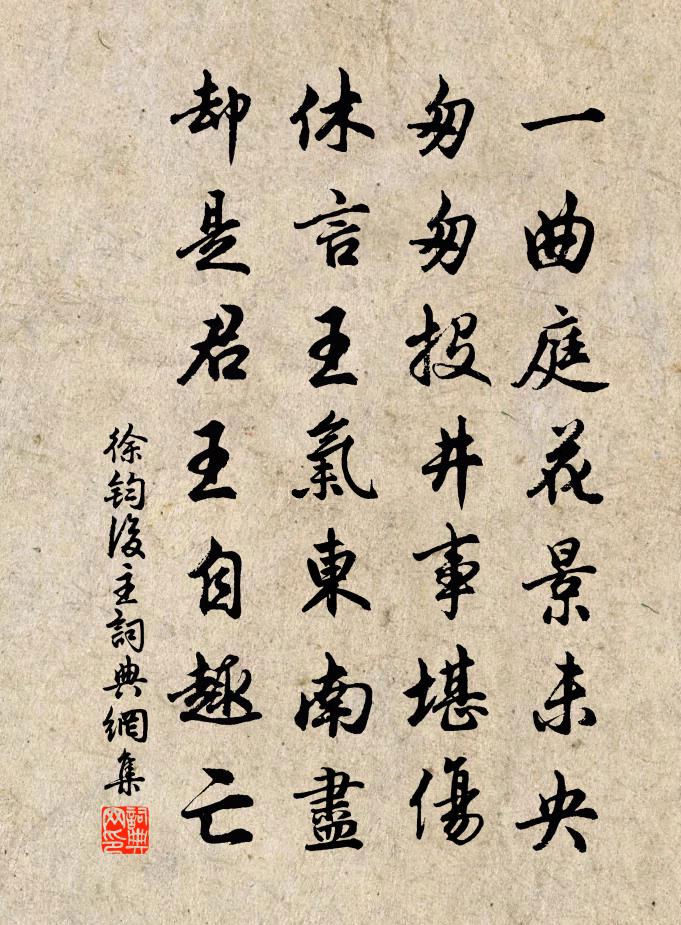 一曲庭花景未央
匆匆投井事堪傷
休言王氣東南盡
却是君王自趣亡
徐鈞後主詞典網集
詞典網印